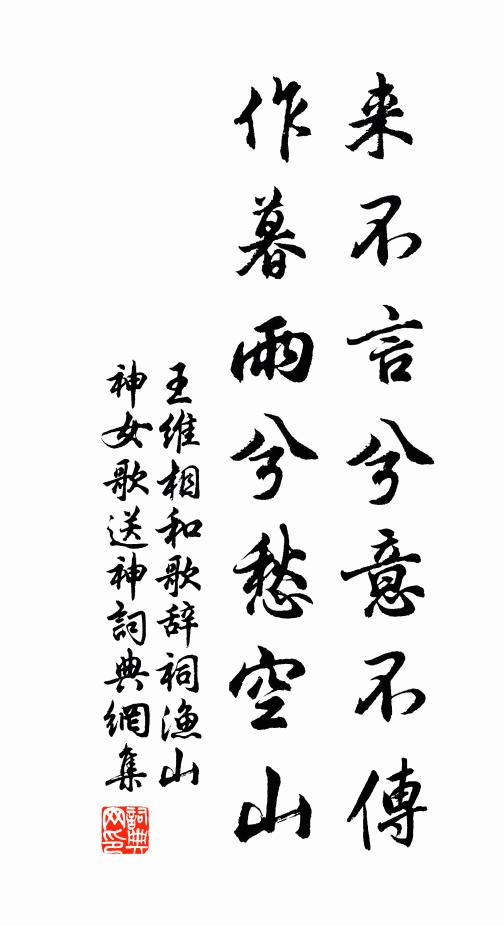 来不言兮意不傳
作暮雨兮愁空山
王维相和歌辞祠漁山
神女歌送神詞典網集
詞典
网印